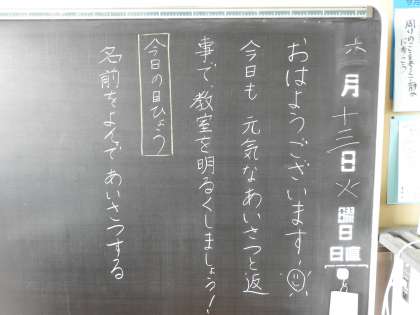 六月十三日火曜日
日直
おはようございます!
今日も元気なあいさつと返
事で、教室を明るくしましょう!
今日の目ひょう
名前をよんであいさつする